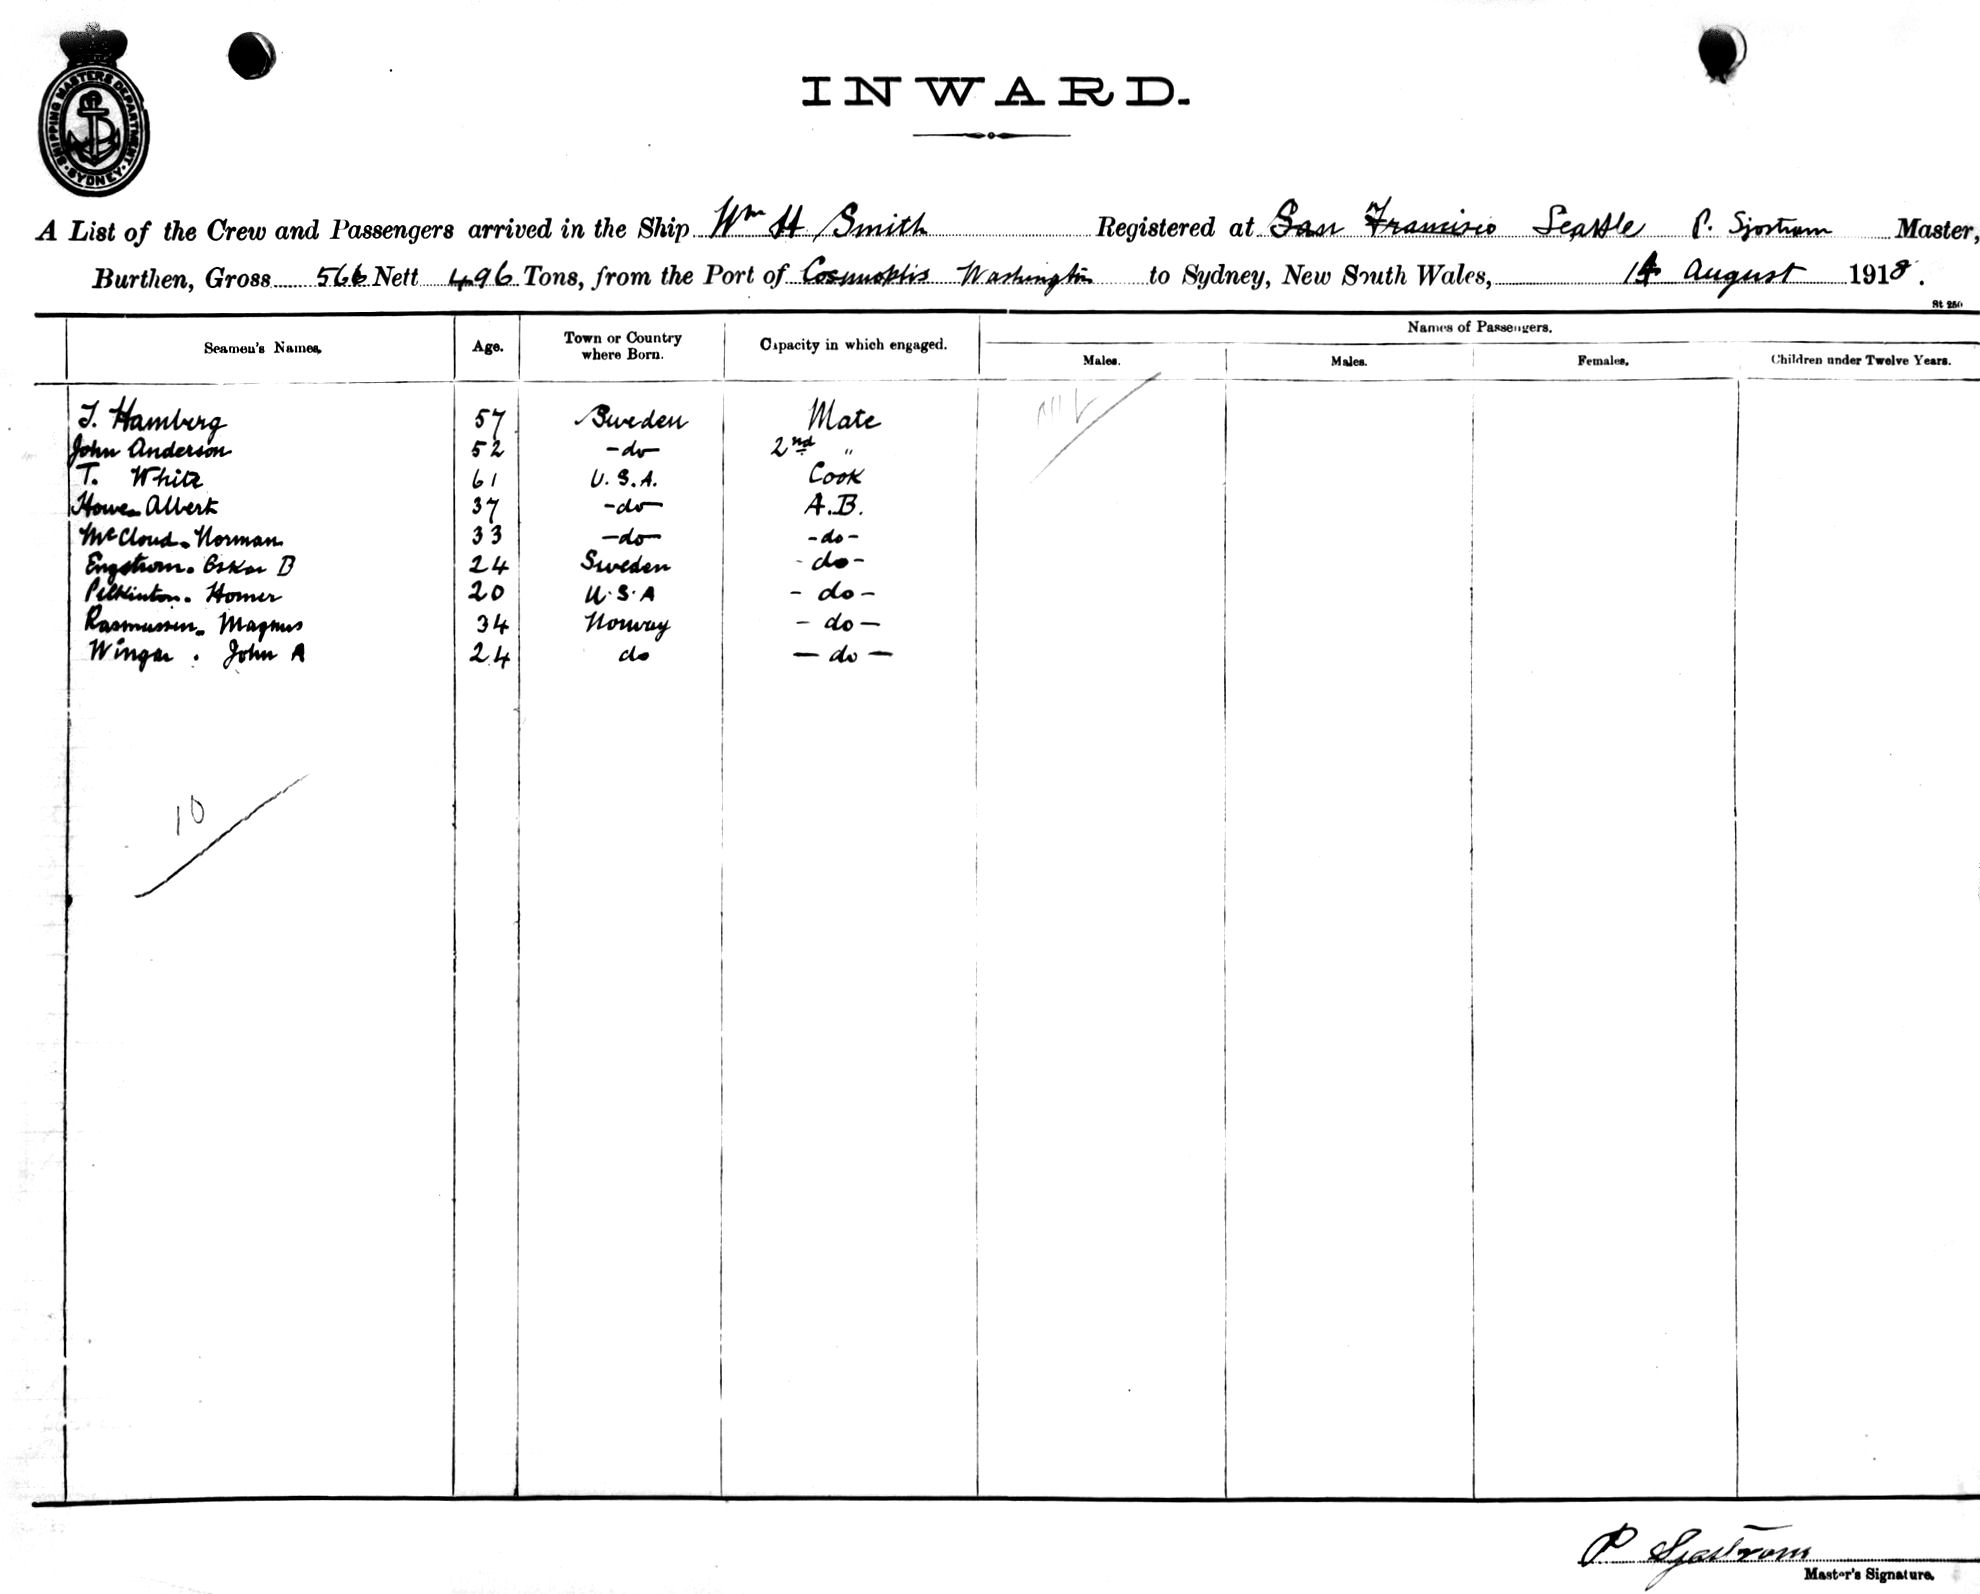 SHIPPING MASTERS DEPARTMENT
SYDNEY
INWARD.
A List of the Crew and Passengers arrived in the Ship Wm H Smith Registered at San Francisco Seattle P. Sjostrom Master,
Burthen, Gross 566 Nett 496 Tons, from the Port of Cosmopolis Washington to Sydney, New South Wales, 14 August 1918.
St 250
Seamen's Names. Age. Town or Country where Born. Capacity in which engaged. Names of Passengers.
Males. Males. Females. Children under Twelve Years.
J. Hamberg 57 Sweden Mate Nil
John Anderson 52 -do- 2nd "
T. White 61 U.S.A. Cook
Howe Albert 37 -do- A.B.
McCloud. Norman 33 -do- -do-
Engstrom. Oskar B 24 Sweden -do-
Pilkinton. Homer 20 U.S.A -do-
Rasmussen. Magnus 34 Norway -do-
Winger. John A 24 do -do-
10
P Sjostrom
Master's Signature.